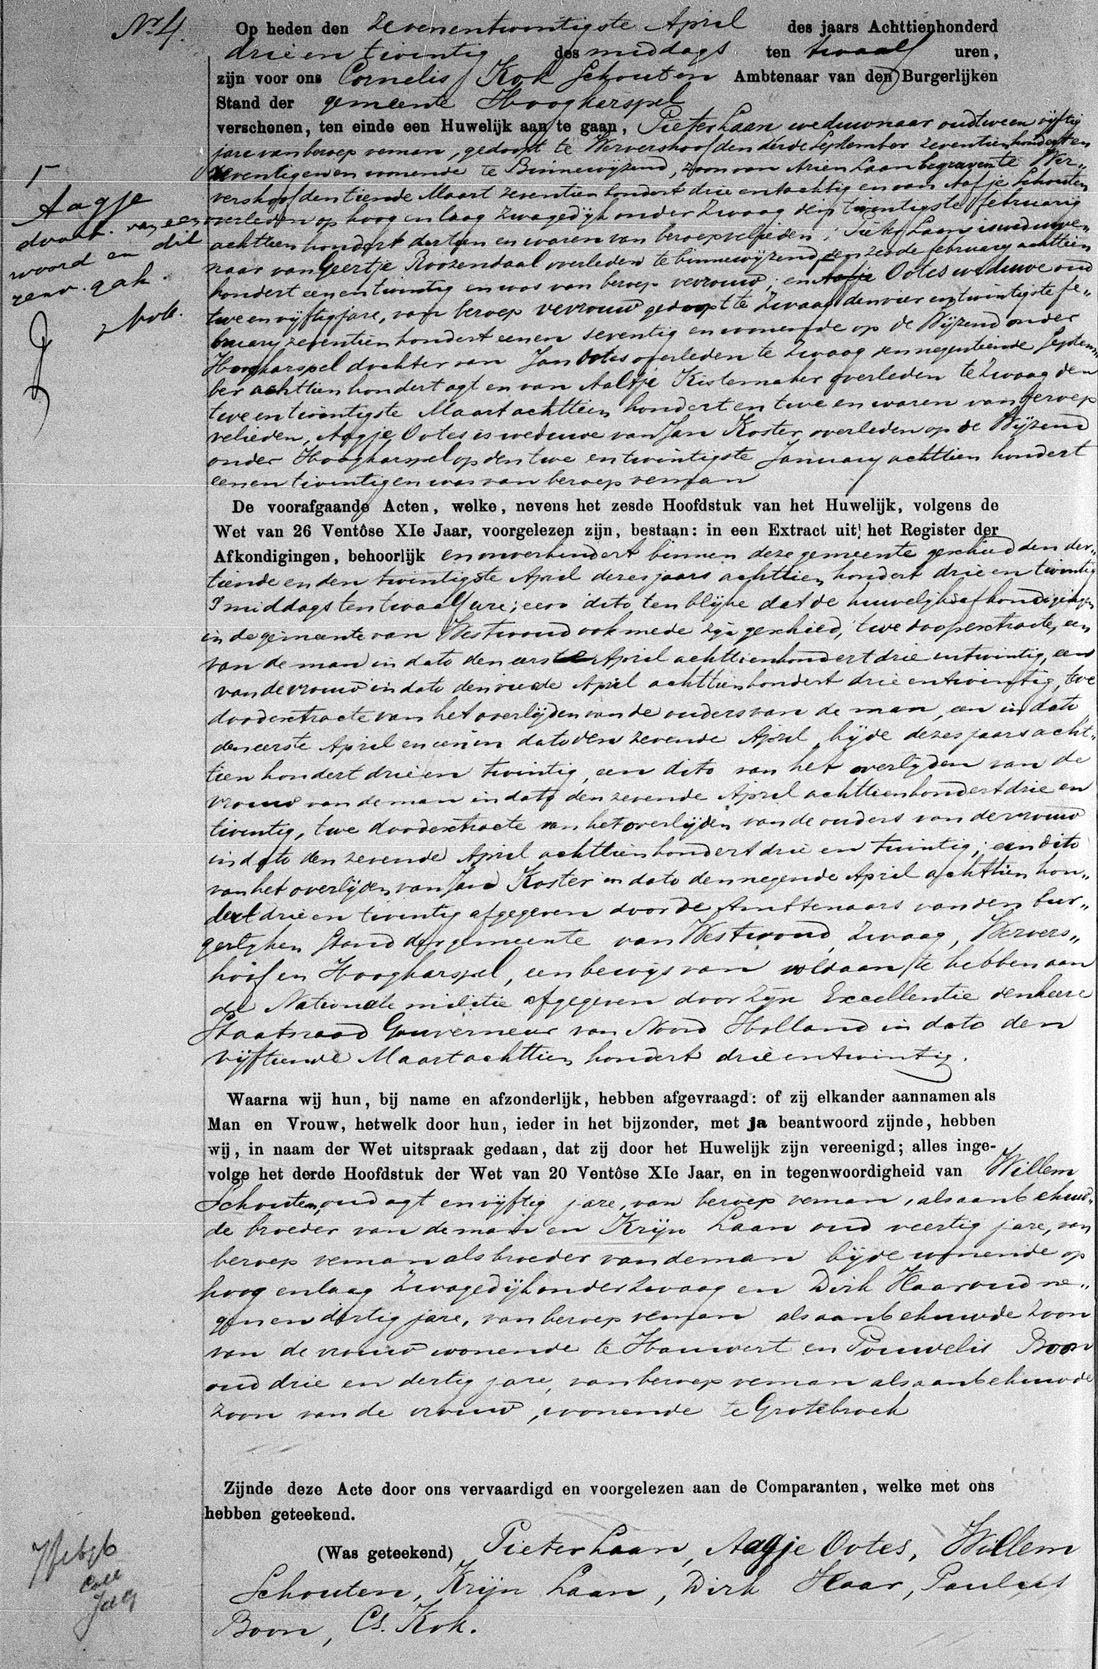 Nr 4.
Op heden den zevenentwintigste April des jaars Achttienhonderd
drie en twintig des middags ten twaalf uren,
zijn voor ons Cornelis Kok Schouten Ambtenaar van den Burgerlijken
Stand der gemeente Hoogkarspel
verschenen, ten einde een Huwelijk aan te gaan, Pieter Laan weduwnaar oud twee en vijftig
jare van beroep veman, gedoopt te Wervershoof den derde September zeventien hondert en
zeventig en wonende te Binnewijzend, zoon van Arien Laan begraven te Wer-
vershoof den tiende Maart zeventien hondert drie en tachtig en van Aafje Schouten
overleden op hoog en laag Zwaagdijk onder Zwaag den twintigste februarij
achttien hondert dertien en waren van beroep velieden, Pieter Laan is weduwe-
naar van Geertje Roozendaal overleden te binnewijzend den zesde february achttien
hondert een en twintig en was van beroep vevrouw, en Aafje Ootes weduwe oud
twee en vijftig jare, van beroep vevrouw gedoopt te Zwaag den vier en twintigste fe-
bruary zeventien hondert een en zeventig en wonende op de Wijzend onder
Hoogkarspel dochter van Jan Ootes overleden te Zwaag den negentiende Septem-
ber achttien hondert agt en van Aaltje Kistemaker overleden te Zwaag den
twee en twintigste Maart achttien hondert en twee en waren van beroep
velieden, Aagje Ootes is weduwe van Jan Koster, overleden op de Wijzend
onder Hoogkarspel op den twee en twintigste January achttien hondert
een en twintig en was van beroep veman
Aagje
door
dit
woord en
De voorafgaande Acten, welke, nevens het zesde Hoofdstuk van het Huwelijk, volgens de
Wet van 26 Ventôse XIe Jaar, voorgelezen zijn, bestaan: in een Extract uit het Register der
Afkondigingen, behoorlijk en onverhindert binnen deze gemeente geschied den der-
tiende en den twintigste April dezes jaars achttien hondert drie en twintig
s middags ten twaalf ure; een dito ten blijke dat de huwelijksafkondigingen
in de gemeente van Westwoud ook mede zijn geschied, twee doopextracte, een
van de man in dato den eerste April achttienhondert drie en twintig, een
van de vrouw in dato den vierde April achttienhondert drie en twintig, twee
doodextracte van het overlijden van de ouders van de man, een in dato
den eerste April en een in dato den zevende April, bijde dezes jaars acht-
tien hondert drie en twintig, een dito van het overlijden van de
vrouw van de man in dato den zevende April achttienhondert drie en
twintig, twee doodextracte van het overlijden van de ouders van de vrouw
in dato den zevende April achttienhondert drie en twintig; een dito
van het overlijden van Jan Koster in dato den negende April achttien hon-
dert drie en twintig afgegeven door de Ambtenaars van den bur-
gerlijken Stand der gemeente van Westwoud, Zwaag, Wervers-
hoof en Hoogkarspel, een bewijs van voldaan te hebben aan
de Nationale militie afgegeven door Zijn Excellentie den heere
Staatsraad Gouverneur van Noord Holland in dato den
vijftiende Maart achttien hondert drie en twintig.
Waarna wij hun, bij name en afzonderlijk, hebben afgevraagd: of zij elkander aannamen als
Man en Vrouw, hetwelk door hun, ieder in het bijzonder, met ja beantwoord zijnde, hebben
wij, in naam der Wet uitspraak gedaan, dat zij door het Huwelijk zijn vereenigd; alles inge-
volge het derde Hoofdstuk der Wet van 20 Ventôse XIe Jaar, en in tegenwoordigheid van Willem
Schouten, oud agt en vijftig jare, van beroep veman, als aanbehuw-
de broeder van de man en Krijn Laan oud veertig jare, van
beroep veman als broeder van de man bijde wonende op
hoog en laag Zwaagdijk onder Zwaag en Dirk Haar oud ne-
gen en dertig jare, van beroep veman als aanbehuwde zoon
van de vrouw wonende te Hauwert en Pouwelis Boon
oud drie en dertig jare, van beroep veman als aanbehuwde
zoon van de vrouw, wonende te Grotebroek
Zijnde deze Acte door ons vervaardigd en voorgelezen aan de Comparanten, welke met ons
hebben geteekend.
(Was geteekend) Pieter Laan, Aagje Ootes, Willem
Schouten, Krijn Laan, Dirk Haar, Paulus
Boon, Cs. Kok.